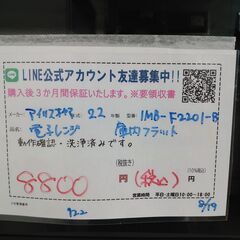 LINE公式アカウント友達募集中!!
購入後3か月間保証いたします。※要領収書
メーカー アイリスオーヤマ 22 年製 型番: IMB-F2201-B
品名: 電子レンジ 庫内フラット
動作確認・洗浄済みです。
(税抜き) (10%税込)
8800 円 (税込) 円
営業時間 平日・土曜日10:00~18:00
922 8/19